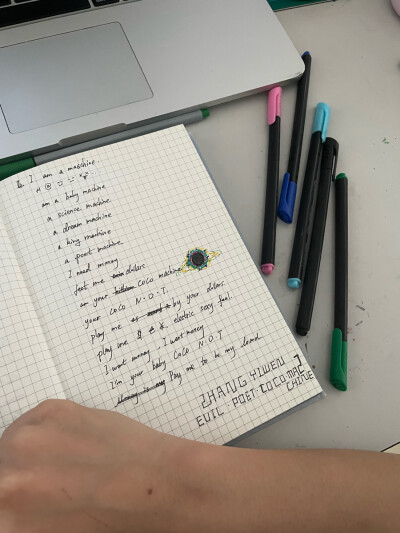 I. am a maschine.
am a baby machine
a science machine
a dream machine
a king machine
a poert machine
I need money
feet me dolars
am your COCO machine
your COCO N.O.T.
play me by your dolars
play me electric sexy feel.
I want money . I want money
I'm your baby COCO N.O.T
Pay me to be my loard
ZHANG YIWEN
EUIL-POET-COCO-MAC
CHINE